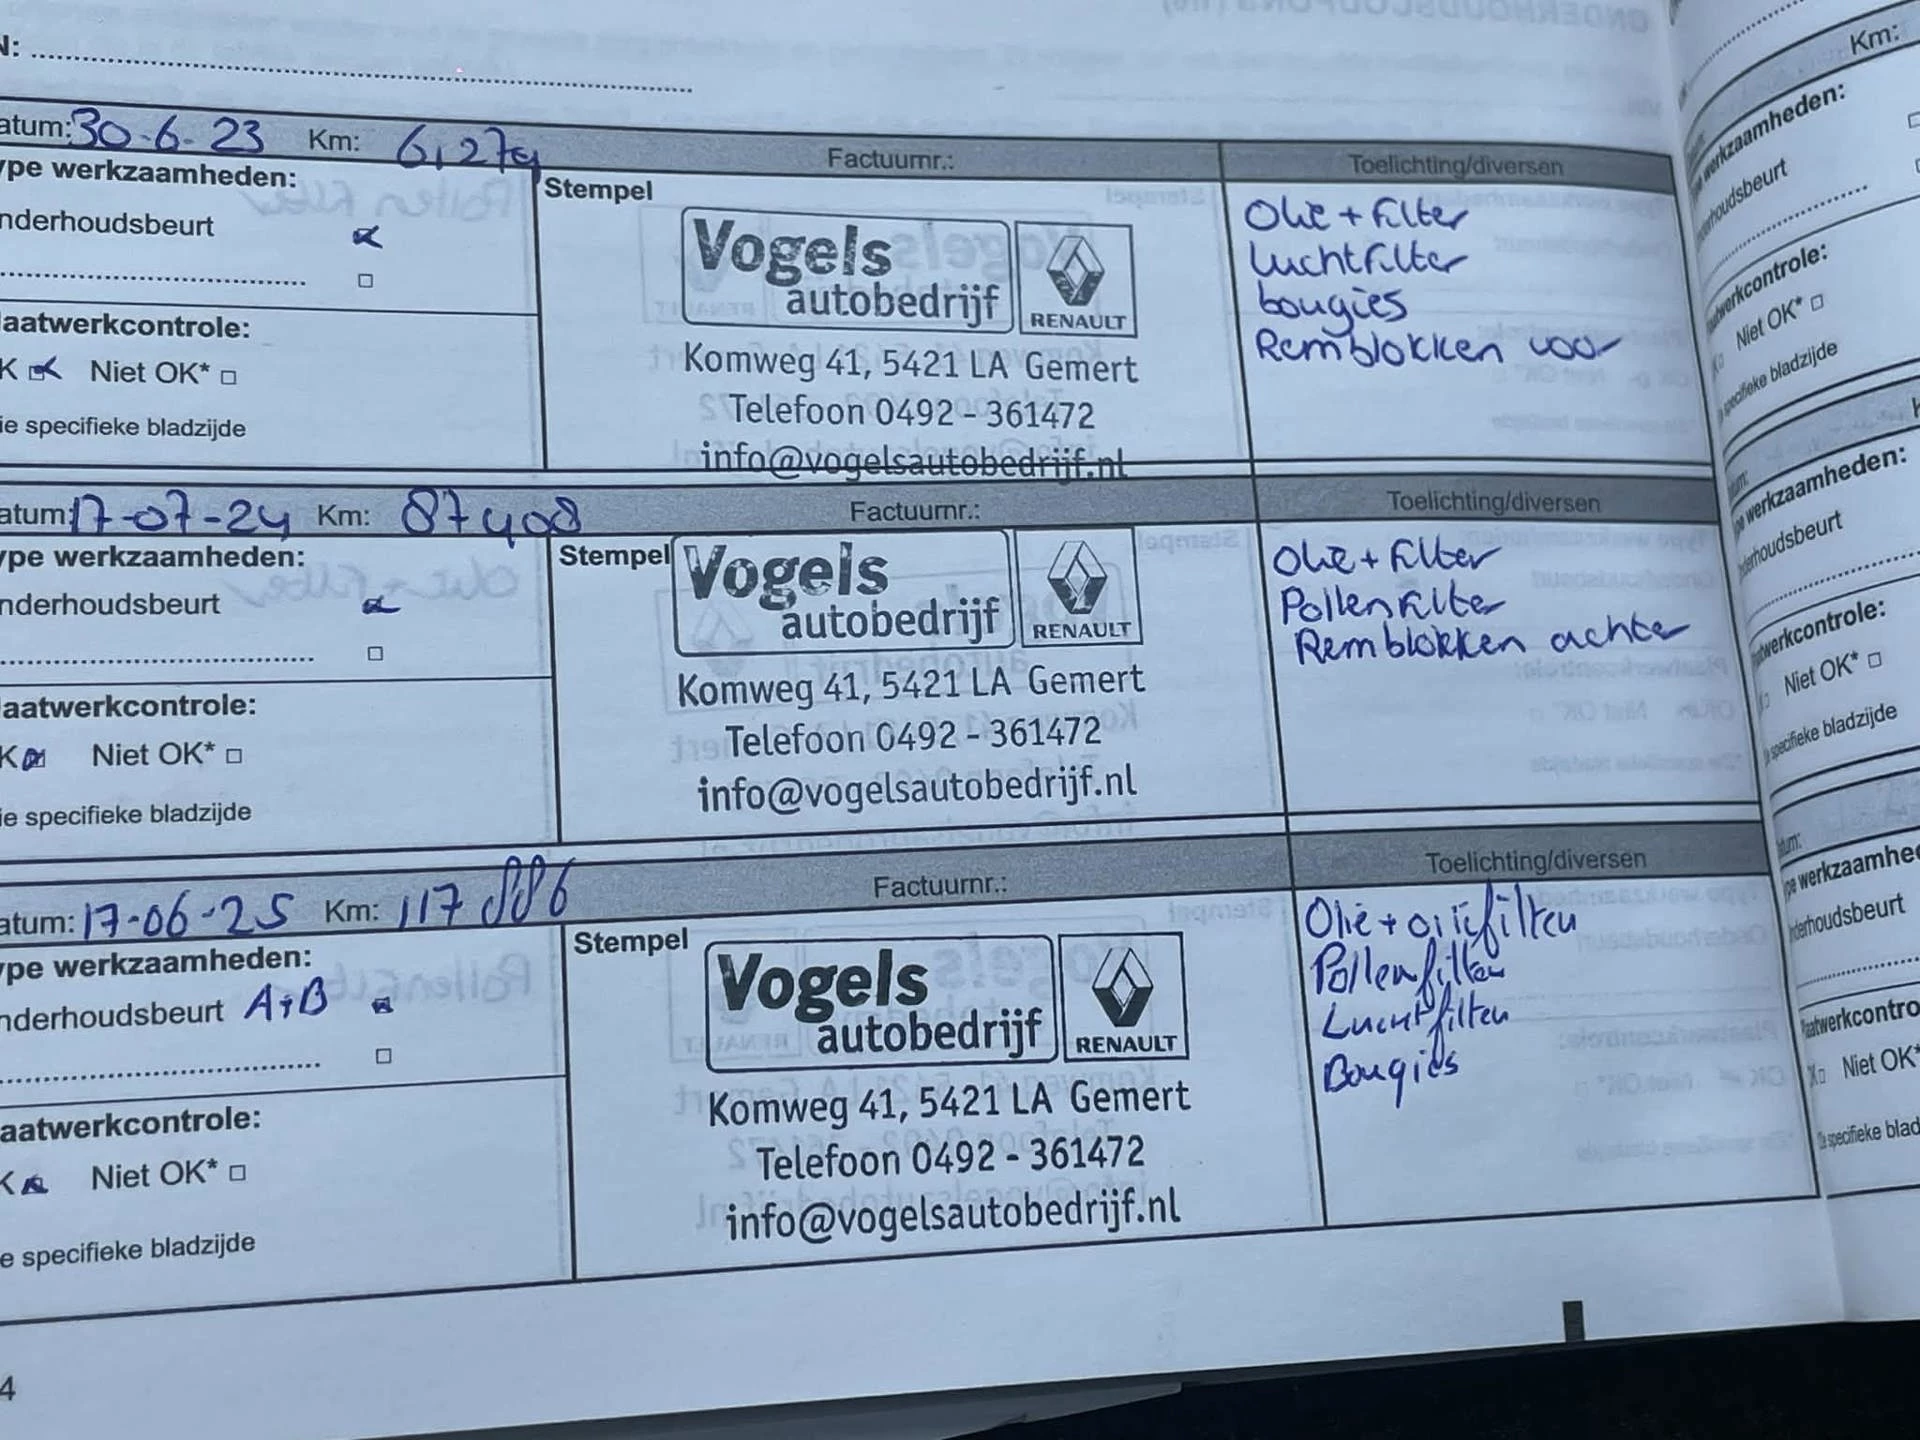 N:
atum: 30-6-23 Km: 6,279 Factuurnr.: Toelichting/diversen
ype werkzaamheden:
nderhoudsbeurt
Stempel
Vogels
autobedrijf
RENAULT
Komweg 41, 5421 LA Gemert
Telefoon 0492 - 361472
info@vogelsautobedrijf.nl
Olie + Filter
Luchtfilter
bougies
Remblokken voor
laatwerkcontrole:
K Niet OK*
ie specifieke bladzijde
atum: 17-07-24 Km: 87408 Factuurnr.: Toelichting/diversen
ype werkzaamheden:
nderhoudsbeurt
Stempel
Vogels
autobedrijf
RENAULT
Komweg 41, 5421 LA Gemert
Telefoon 0492 - 361472
info@vogelsautobedrijf.nl
Olie + Filter
Pollenfilter
Remblokken achter
laatwerkcontrole:
K Niet OK*
ie specifieke bladzijde
atum: 17-06-25 Km: 117 886 Factuurnr.: Toelichting/diversen
ype werkzaamheden:
nderhoudsbeurt A+B
Stempel
Vogels
autobedrijf
RENAULT
Komweg 41, 5421 LA Gemert
Telefoon 0492 - 361472
info@vogelsautobedrijf.nl
Olie + oliefilter
Pollenfilter
Luchtfilter
Bougies
aatwerkcontrole:
K Niet OK*
e specifieke bladzijde
4
Km:
werkzaamheden:
erhoudsbeurt
werkcontrole:
Niet OK*
specifieke bladzijde
werkzaamheden:
erhoudsbeurt
werkcontrole:
Niet OK*
specifieke bladzijde
werkzaamhe
derhoudsbeurt
aatwerkcontro
Niet OK*
specifieke blad